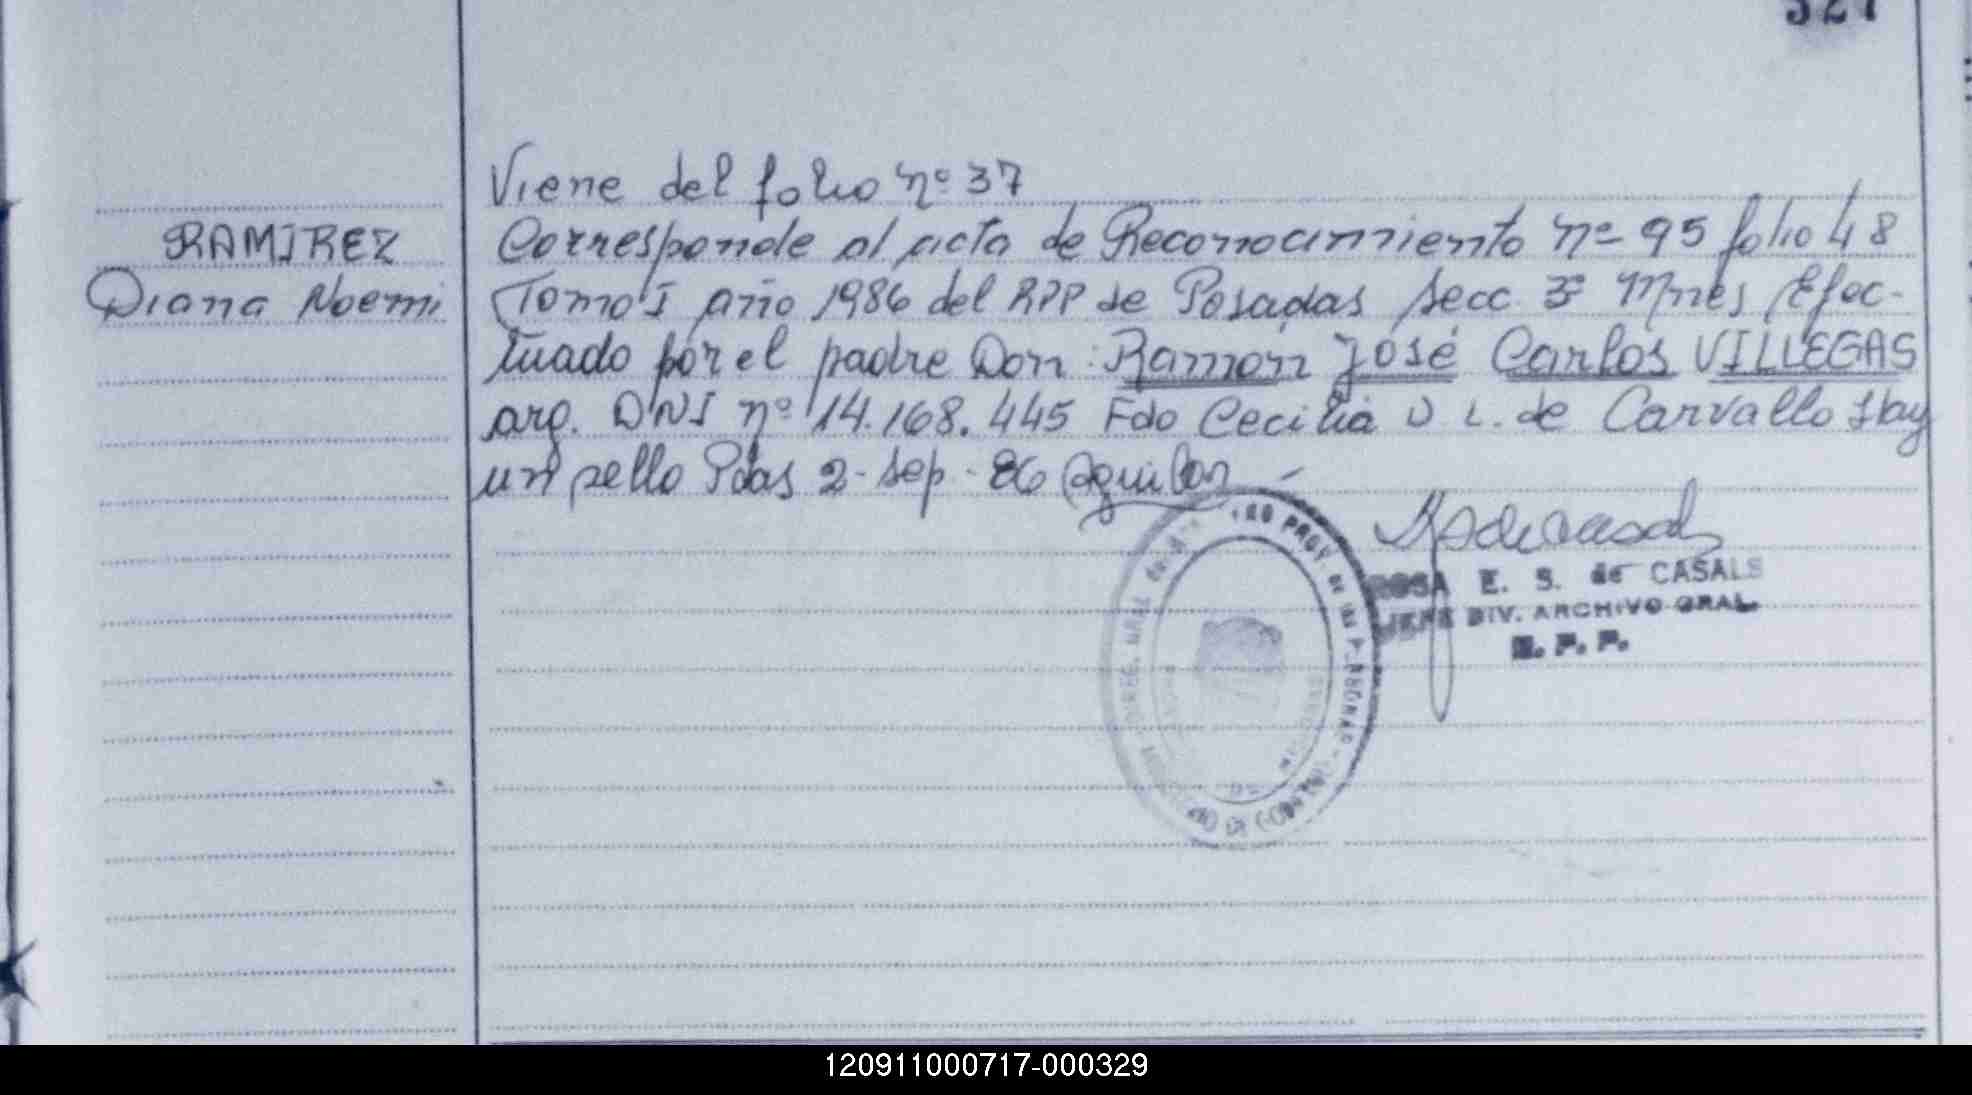 327
Viene del folio nº 37
RAMIREZ
Diana Noemi
Corresponde al acta de Reconocimiento nº 95 folio 48
Tomo I año 1986 del RPP de Posadas Secc 3ª Mnes Efec-
tuado por el padre Don: Ramón José Carlos VILLEGAS
arg. DNI nº 14.168.445 Fdo Cecilia D. L. de Carvallo Hay
un sello Pdas 2-Sep-86
ROSA E. S. de CASALS
JEFE DIV. ARCHIVO GRAL.
R. P. P.
120911000717-000329